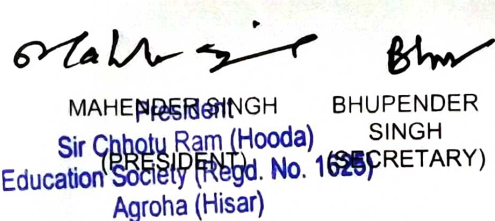 MAHENDER SINGH
(PRESIDENT)
BHUPENDER
SINGH
(SECRETARY)
President
Sir Chhotu Ram (Hooda)
Education Society (Regd. No. 1626)
Agroha (Hisar)